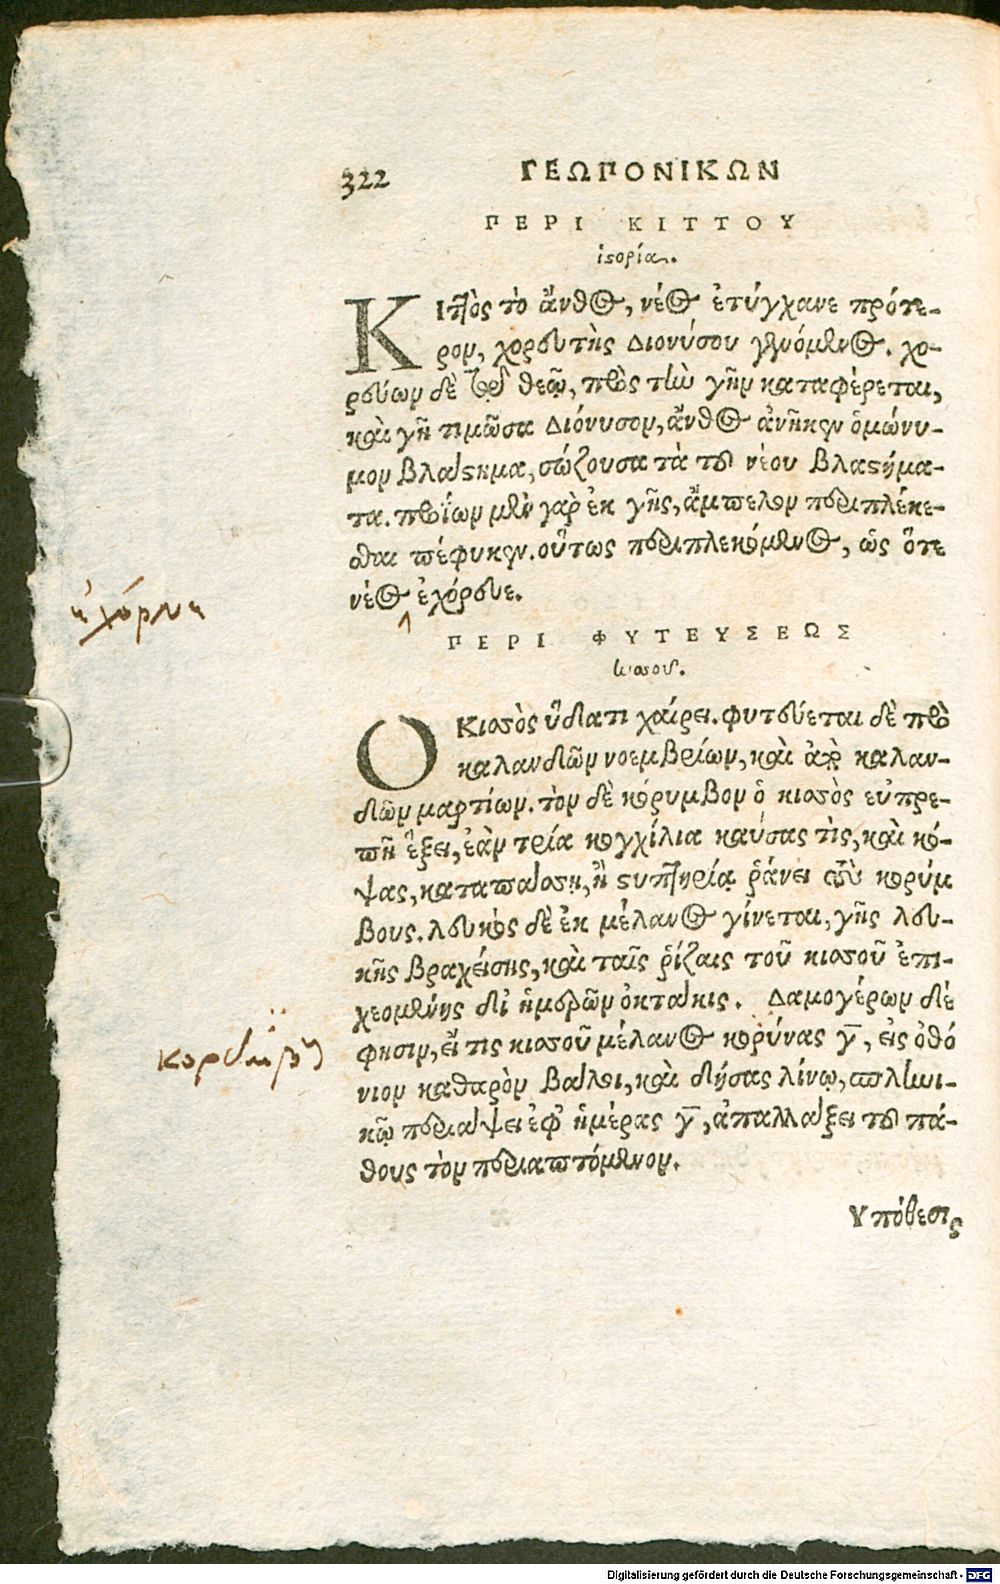 322 ΓΕΩΠΟΝΙΚΩΝ
ΠΕΡΙ ΚΙΤΤΟΥ
ἱστορία.
ΚΙττὸς τὸ ἄνθος, νέος ἐτύγχανε πρότε-
ρον, χορευτὴς Διονύσου γενόμενος. χο-
ρεύων δὲ τῷ θεῷ, πρὸς τὴν γῆν καταφέρεται,
καὶ γῆ τιμῶσα Διόνυσον, ἄνθος ἀνῆκεν ὁμώνυ-
μον βλάστημα, σώζουσα τὰ τοῦ νέου βλαστήμα-
τα. προϊὼν μὲν γὰρ ἐκ γῆς, ἄμπελον περιπλέκε-
σθαι πέφυκεν. οὕτως περιπλεκόμενος, ὡς ὅτε
νέος ἐχόρευε.
ΠΕΡΙ ΦΥΤΕΥΣΕΩΣ
κισσοῦ.
Ο Κισσὸς ὕδατι χαίρει. φυτεύεται δὲ πρὸ
καλανδῶν νοεμβρίων, καὶ πρὸ καλαν-
δῶν μαρτίων. τὸν δὲ κόρυμβον ὁ κισσὸς εὐπρε-
πῆ ἕξει, ἐὰν τρία κογχίλια καύσας τὶς, καὶ κό-
ψας, καταπάσσῃ, ἢ στυπτηρίᾳ ῥάνει τοὺς κορύμ
βους. λευκὸς δὲ ἐκ μέλανος γίνεται, γῆς λευ-
κῆς βραχείσης, καὶ ταῖς ῥίζαις τοῦ κισσοῦ ἐπι-
χεομένης δι' ἡμερῶν ὀκτάκις. Δαμογέρων δέ
φησιν, εἴ τις κισσοῦ μέλανος κορύνας γ̅, εἰς ὀθό
νιον καθαρὸν βάλοι, καὶ δήσας λίνῳ, σπληνι-
κῷ περιάψει ἐφ' ἡμέρας γ̅, ἀπαλλάξει τοῦ πά-
θους τὸν περιαπτόμενον.
Υπόθεσις